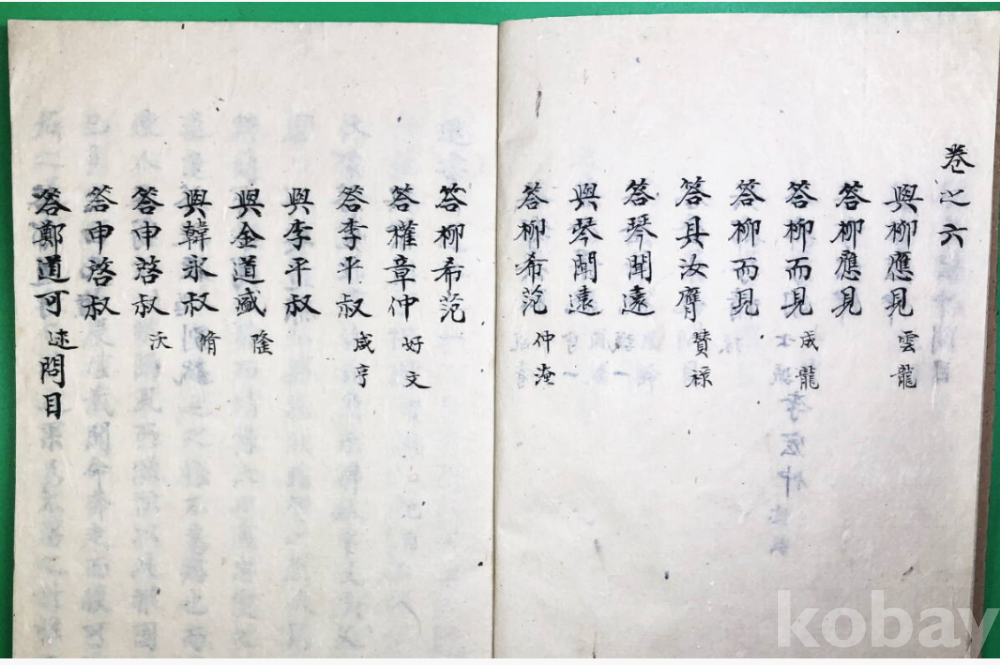 卷之六
與柳應見 雲龍
答柳應見
答柳而見 成龍
答柳而見
答具汝膺 贊祿
答琴聞遠
與琴聞遠
答柳希范 仲淹
答柳希范
答權章仲 好文
答李平叔 咸亨
與李平叔
與金道盛 隆
與韓永叔 脩
答申啓叔 沃
答申啓叔
答鄭道可 逑 問目
kobay